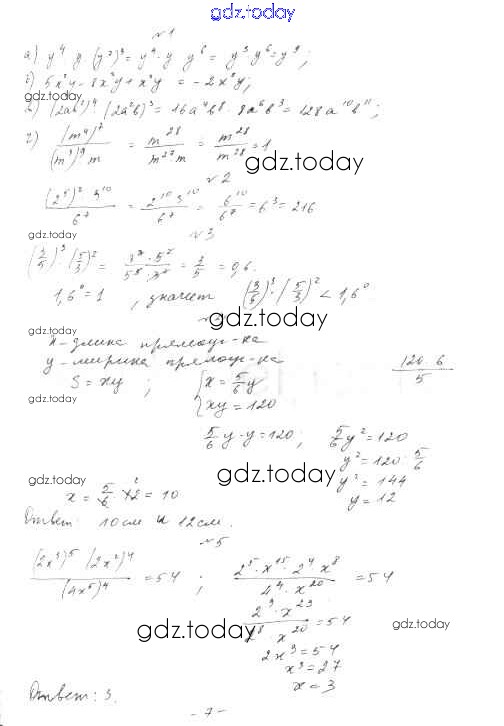 gdz.today
№1
а) y⁴ · y · (y²)³ = y⁴ · y · y⁶ = y⁵ y⁶ = y⁹;
б) 5x²y - 8x²y + x²y = -2x²y;
gdz.today
в) (2ab²)⁴ · (2a²b)³ = 16a⁴b⁸ · 8a⁶b³ = 128a¹⁰b¹¹;
г) (m⁴)⁷ / (m³)⁹ m = m²⁸ / m²⁷m = m²⁸ / m²⁸ = 1
gdz.today
№2
(2⁵)² · 3¹⁰ / 6⁷ = 2¹⁰ 3¹⁰ / 6⁷ = 6¹⁰ / 6⁷ = 6³ = 216
gdz.today
№3
(3/5)³ · (5/3)² = 3³ · 5² / 5³ · 3² = 3/5 = 0,6.
1,6⁰ = 1 , значит (3/5)³ · (5/3)² < 1,6⁰
gdz.today
x - длина прямоуг-ка
y - ширина прямоуг-ка
120 · 6 / 5
S = xy ; { x = 5/6 y
xy = 120
gdz.today
5/6 y · y = 120; 5/6 y² = 120
y² = 120 : 5/6
gdz.today
gdz.today
y² = 144
x = 5/6 · 12 = 10
y = 12
Ответ: 10 см и 12 см.
№5
(2x³)⁵ · (2x²)⁴ / (4x⁵)⁴ = 54 ; 2⁵ · x¹⁵ · 2⁴ x⁸ / 4⁴ · x²⁰ = 54
2⁹ · x²³ / 2⁸ · x²⁰ = 54
gdz.today
gdz.today
2x³ = 54
x³ = 27
x = 3
Ответ: 3.
- 7 -